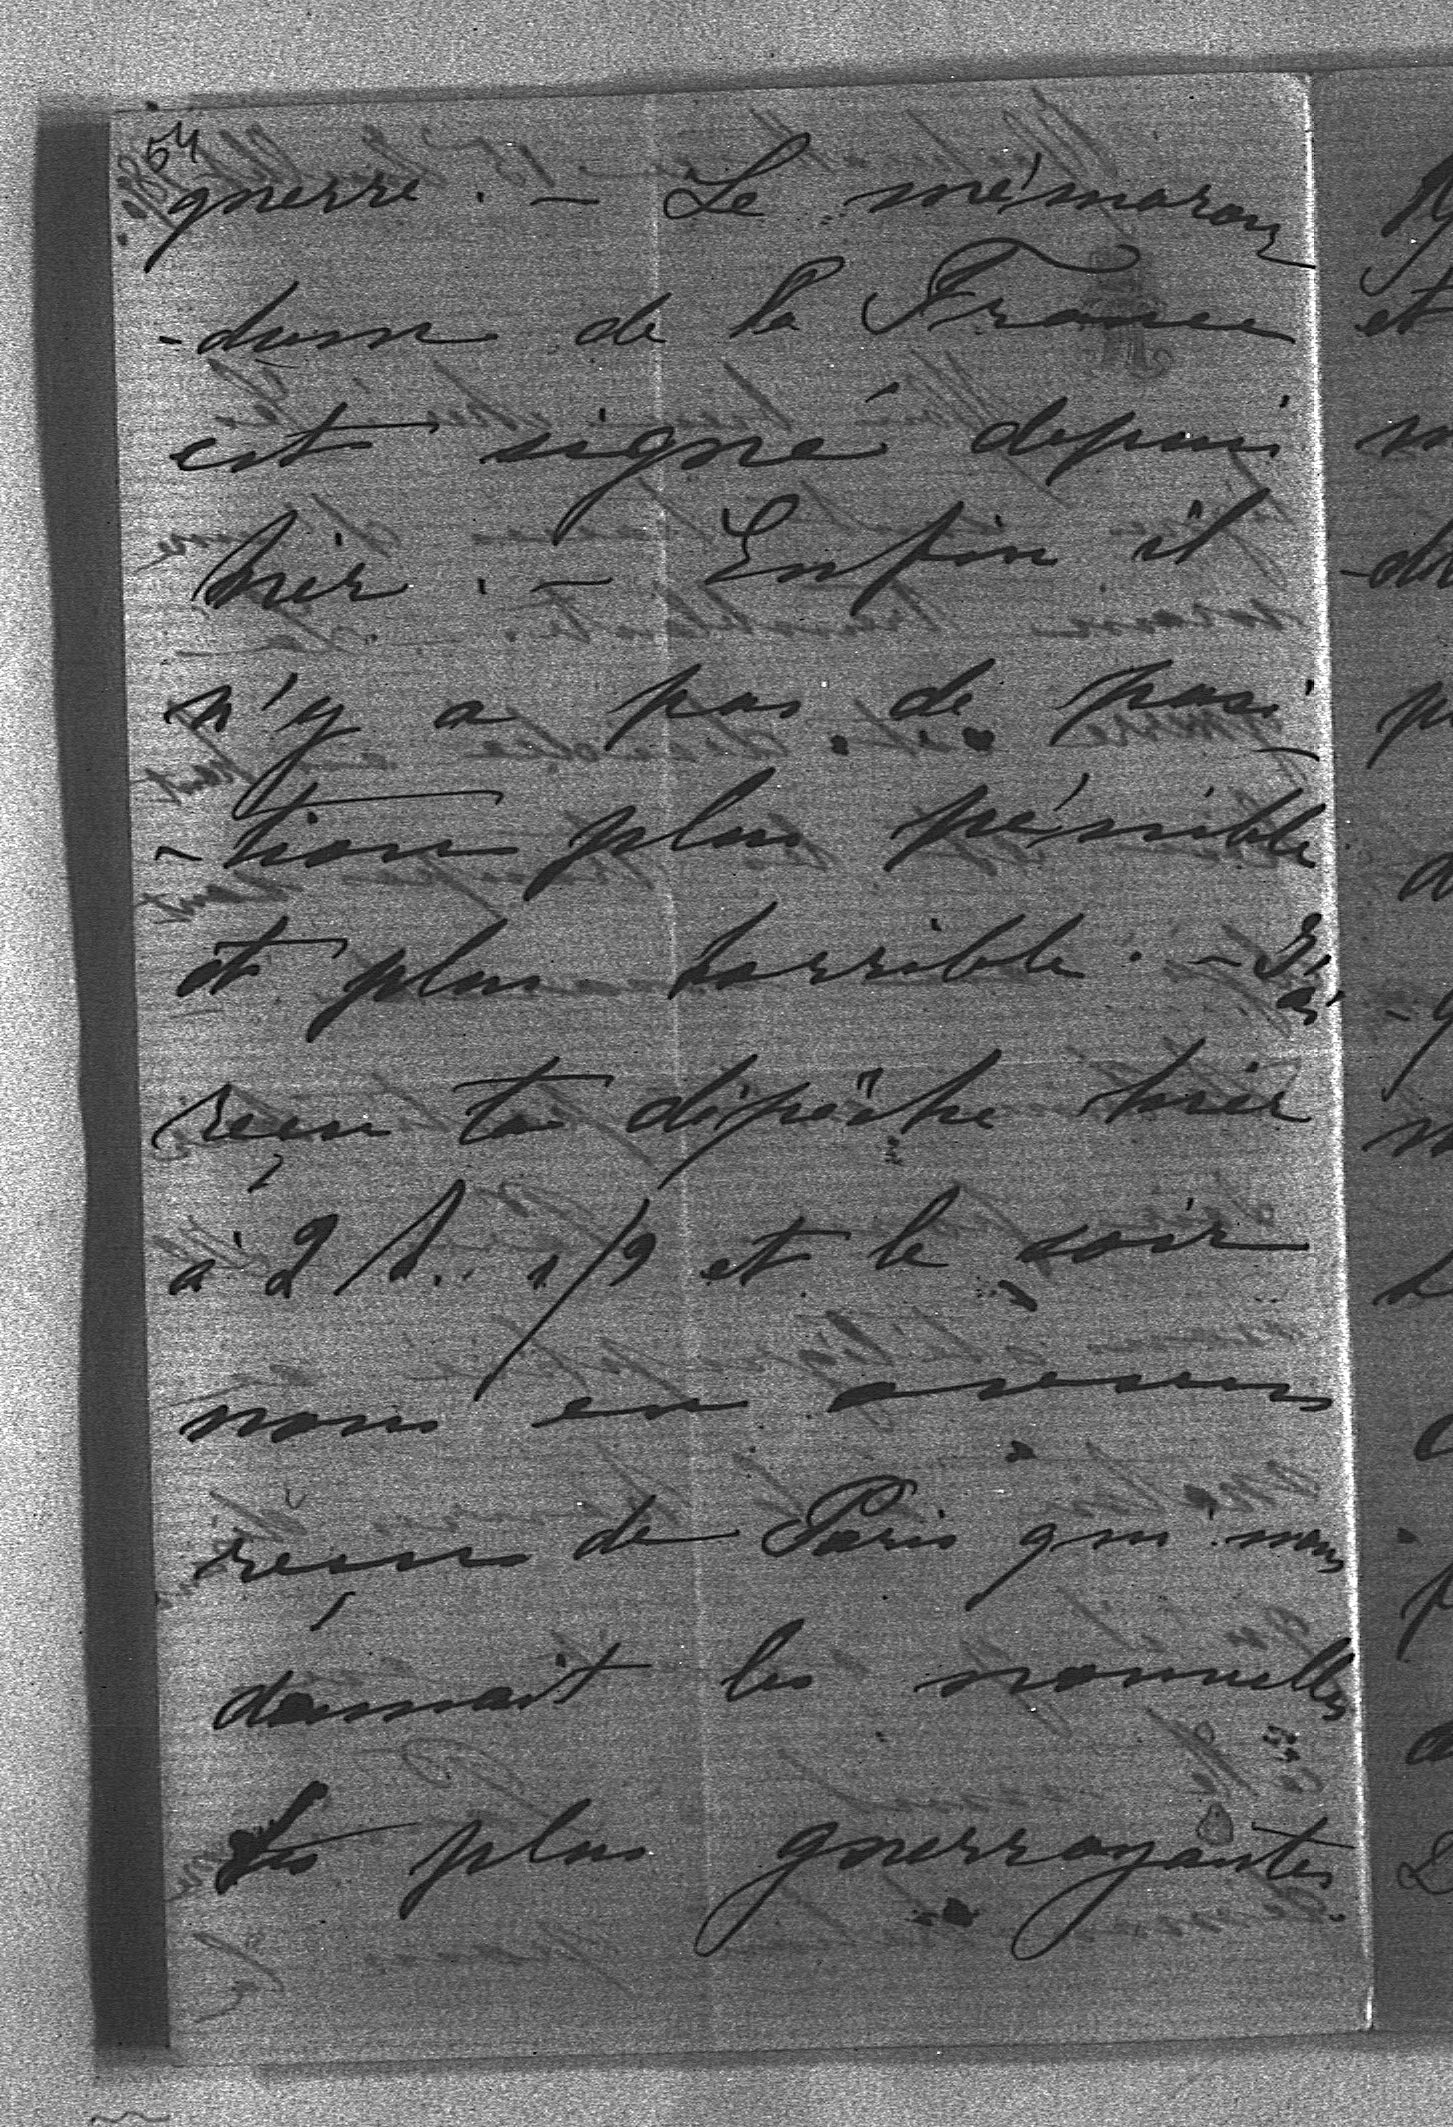 54
guerre. — Le mémoran
-dum de la France
est signé depuis
hier. — Enfin il
n'y a pas de posi
-tion plus pénible
et plus horrible. — J'ai
reçu ta dépêche hier
à 2 h. 1/2 et le soir
nous en avons
reçu de Paris qui nous
donnait les nouvelles
les plus guerroyantes